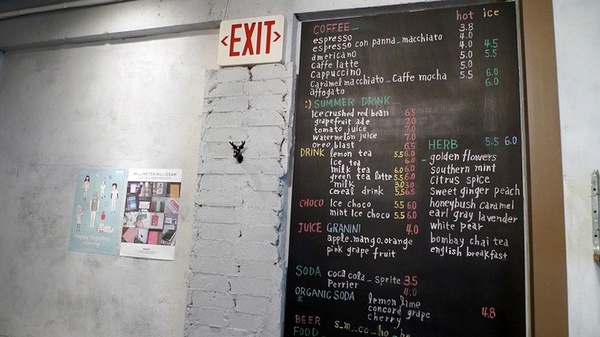 EXIT
COFFEE hot ice
espresso 3.8
espresso con panna_macchiato 4.0
americano 4.0 4.5
Caffe latte 5.0 5.5
Cappuccino 5.0
Caramel macchiato_Caffe mocha 5.5 6.0
affogato 6.0
:) SUMMER DRINK
Ice crushed red bean 6.5
grapefruit ade 7.0
tomato juice 7.0
watermelon juice 7.0
oreo blast 6.5
DRINK lemon tea 5.5 6.0
Ice tea 6.0
milk tea 6.0 6.0
green tea latte 5.5 6.0
milk 3.0 3.0
cereal drink 5.5 6.5
CHOCO Ice choco 5.5 6.0
mint Ice choco 5.5 6.0
JUICE GRANINI 4.0
apple.mango.orange
pink grape fruit
SODA coca cola_sprite 3.5
Perrier 4.0
ORGANIC SODA lemon lime
concord grape 4.8
cherry
BEER S_m_co_ho_he
FOOD
HERB 5.5 6.0
golden flowers
southern mint
citrus spice
sweet ginger peach
honeybush caramel
earl gray lavender
white pear
bombay chai tea
english breakfast
MILLIMETER MILLIGRAM